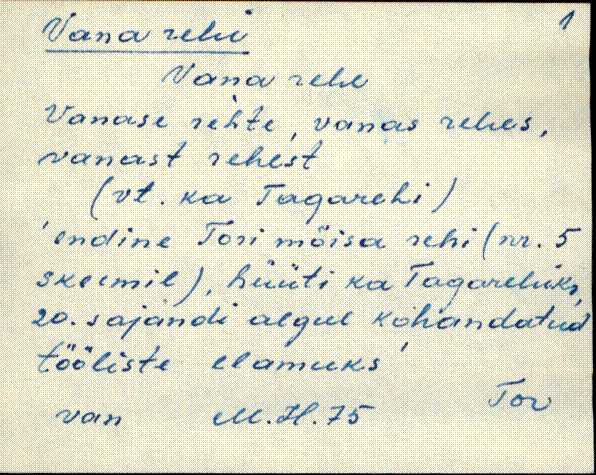 1
Vana rehi
Vana rehe
Vanase rehte, vanas rehes,
vanast rehest
(vt. ka Tagarehi)
'endine Tori mõisa rehi (nr. 5
skeemil), hüüti ka Tagarehiks,
20. sajandi algul kohandatud
tööliste elamuks'
Tor
van M.H. 75